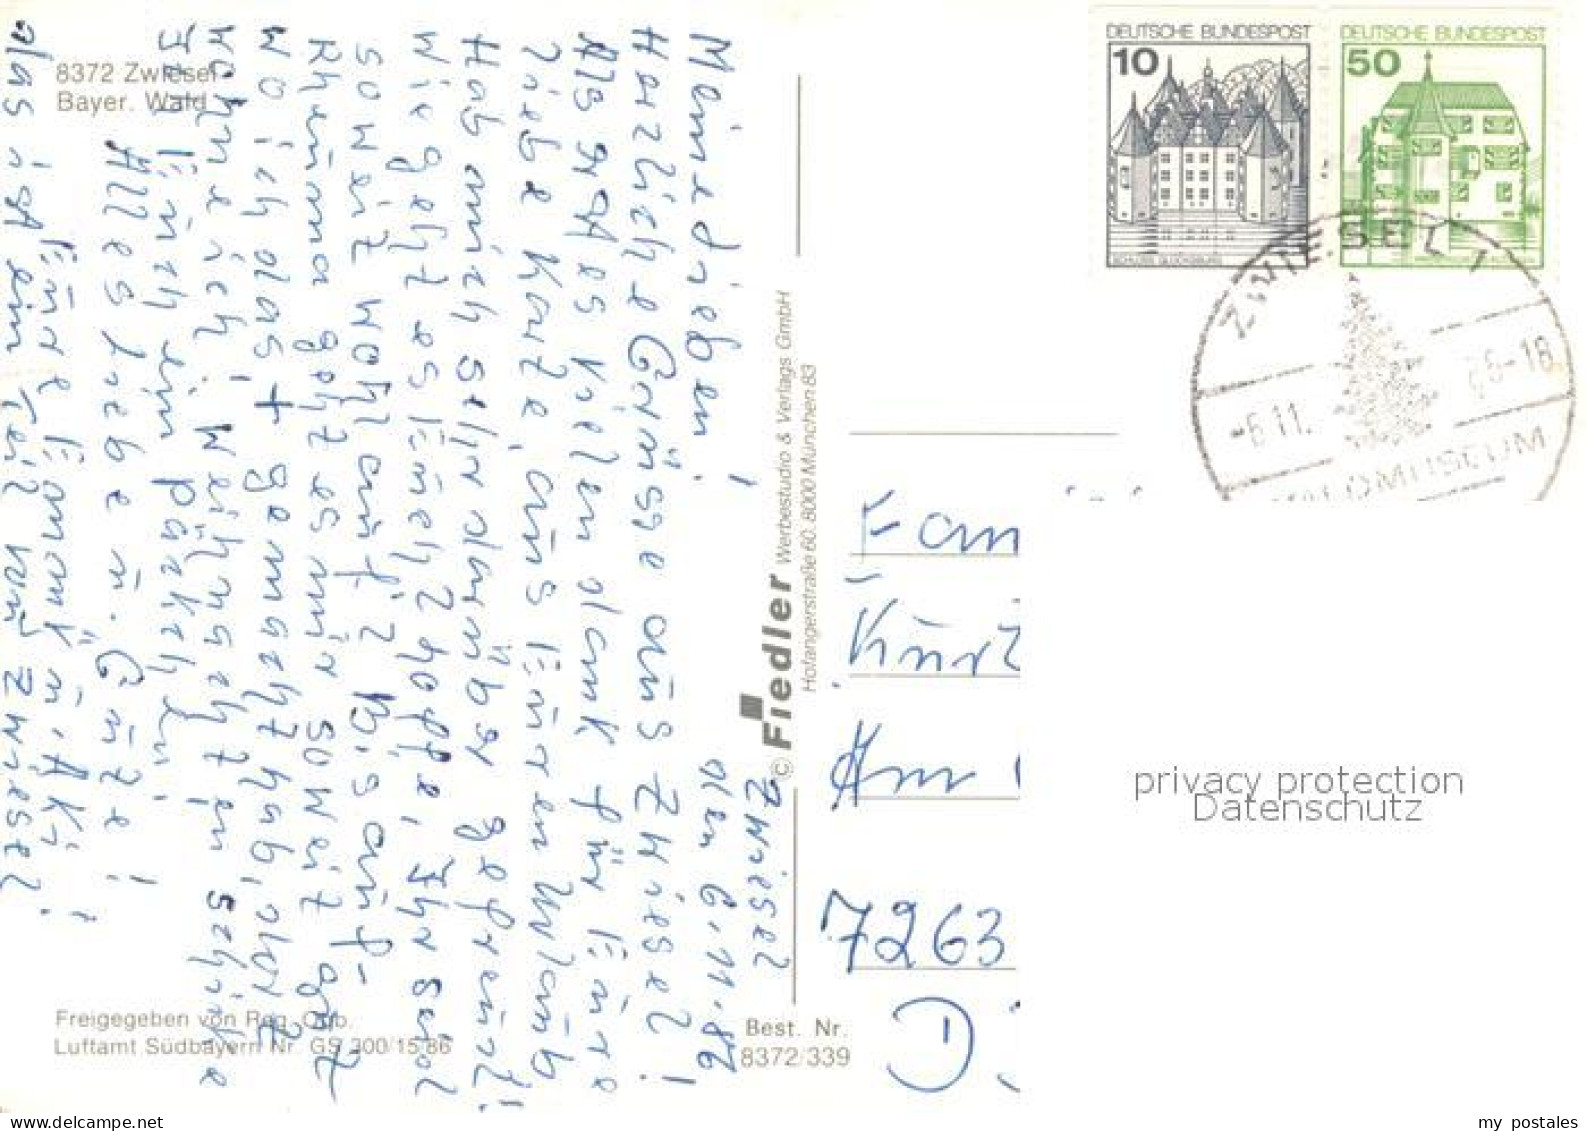 8372 Zwiesel
Bayer. Wald
DEUTSCHE BUNDESPOST
10
SCHLOSS GLÜCKSBURG
DEUTSCHE BUNDESPOST
50
ZWIESEL 1
-6.11.
86-18
WALDMUSEUM
Zwiesel
den 6.11.86
Meine Lieben!
Herzliche Grüsse aus Zwiesel!
Als erstes vielen dank für Eure
liebe Karte, aus Euren Urlaub
Hab mich sehr darüber gefreut!
Wie geht es Euch? hoffe, Ihr seid
soweit wohlauf? Bis auf
Rheuma geht es mir soweit gut
wo ich das + gemacht hab,
wohne ich! Weihnacht
Euch ein Päckchen!
Alles Liebe u. Gute!
Eure
das ist ein Teil von Zwiesel!
© Fiedler Werbestudio & Verlags GmbH
Hofangerstraße 60, 8000 München 83
Fam
Kurt
Am
7263
Freigegeben von Reg. Obb.
Luftamt Südbayern Nr. GS 300/15/86
Best. Nr.
8372/339
privacy protection
Datenschutz
my postales